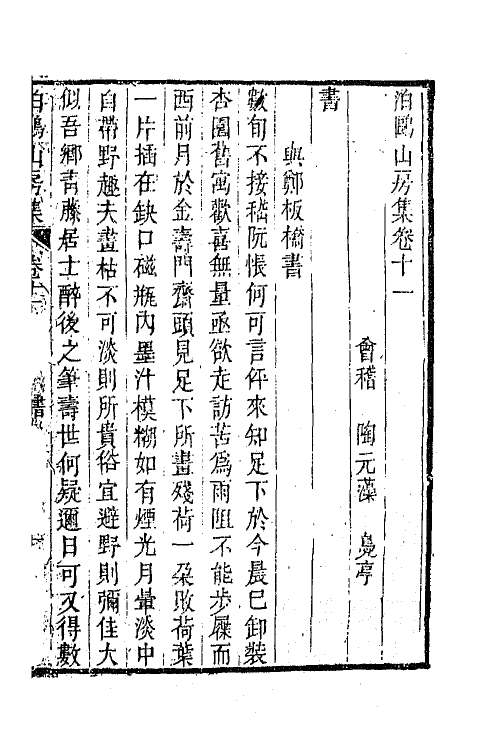 泊鷗山房集卷十一
會稽 陶元藻 鳧亭
書
與鄭板橋書
數旬不接嵇阮悵何可言伻來知足下於今晨已卸裝
杏園舊寓歡喜無量亟欲走訪苦爲雨阻不能步屧而
西前月於金壽門齋頭見足下所畫殘荷一朶敗荷葉
一片插在缺口磁瓶內墨汁模糊如有煙光月暈淡中
自帶野趣夫畫枯不可淡則所貴俗宜避野則彌佳大
似吾鄉靑藤居士醉後之筆壽世何疑邇日可又得數
泊鷗山房集 卷十一 書